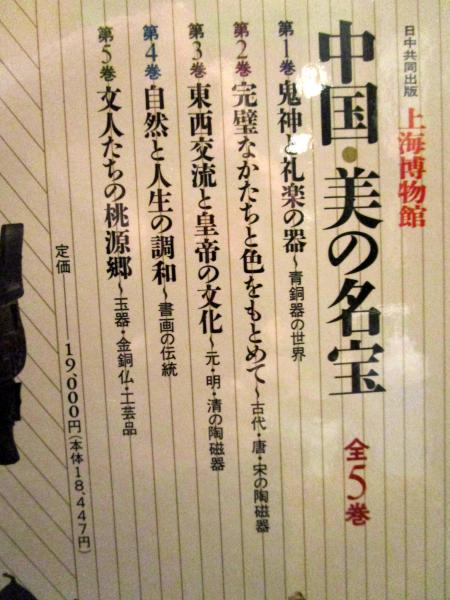 日中共同出版 上海博物館
中国・美の名宝 全5巻
第1巻 鬼神と礼楽の器〜青銅器の世界
第2巻 完璧なかたちと色をもとめて〜古代・唐・宋の陶磁器
第3巻 東西交流と皇帝の文化〜元・明・清の陶磁器
第4巻 自然と人生の調和〜書画の伝統
第5巻 文人たちの桃源郷〜玉器・金銅仏・工芸品
定価 19,000円(本体18,447円)